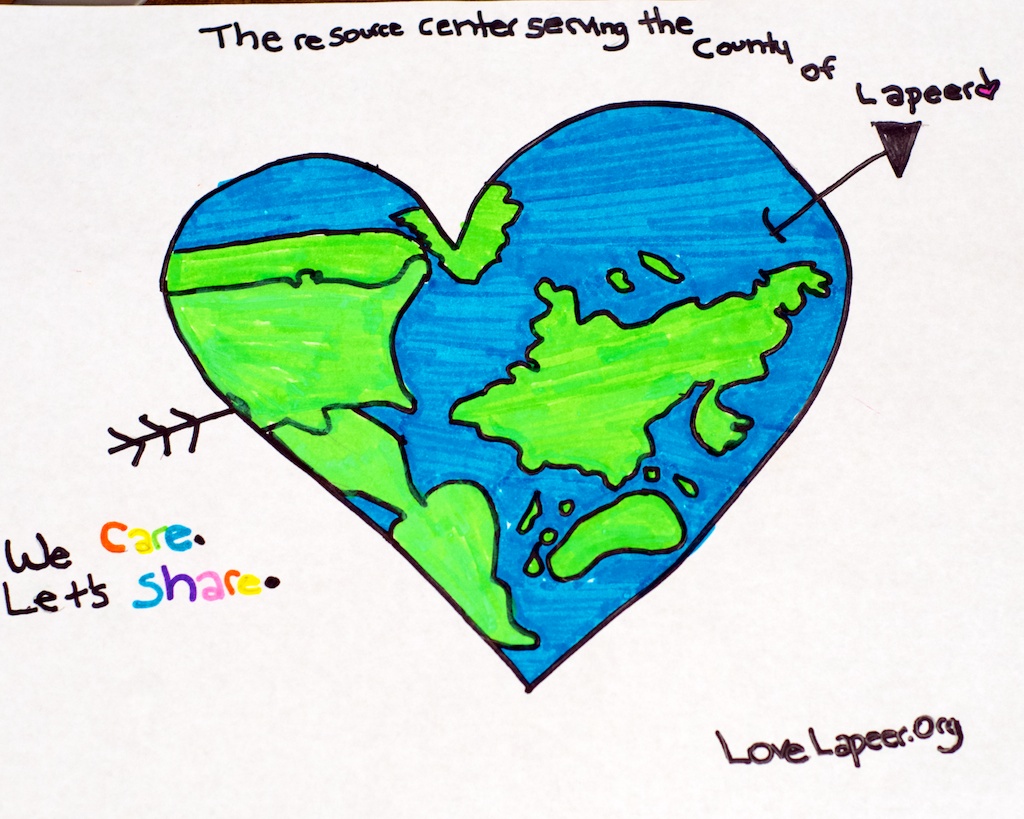 The resource center serving the County of Lapeer
We care.
Let's share.
LoveLapeer.Org